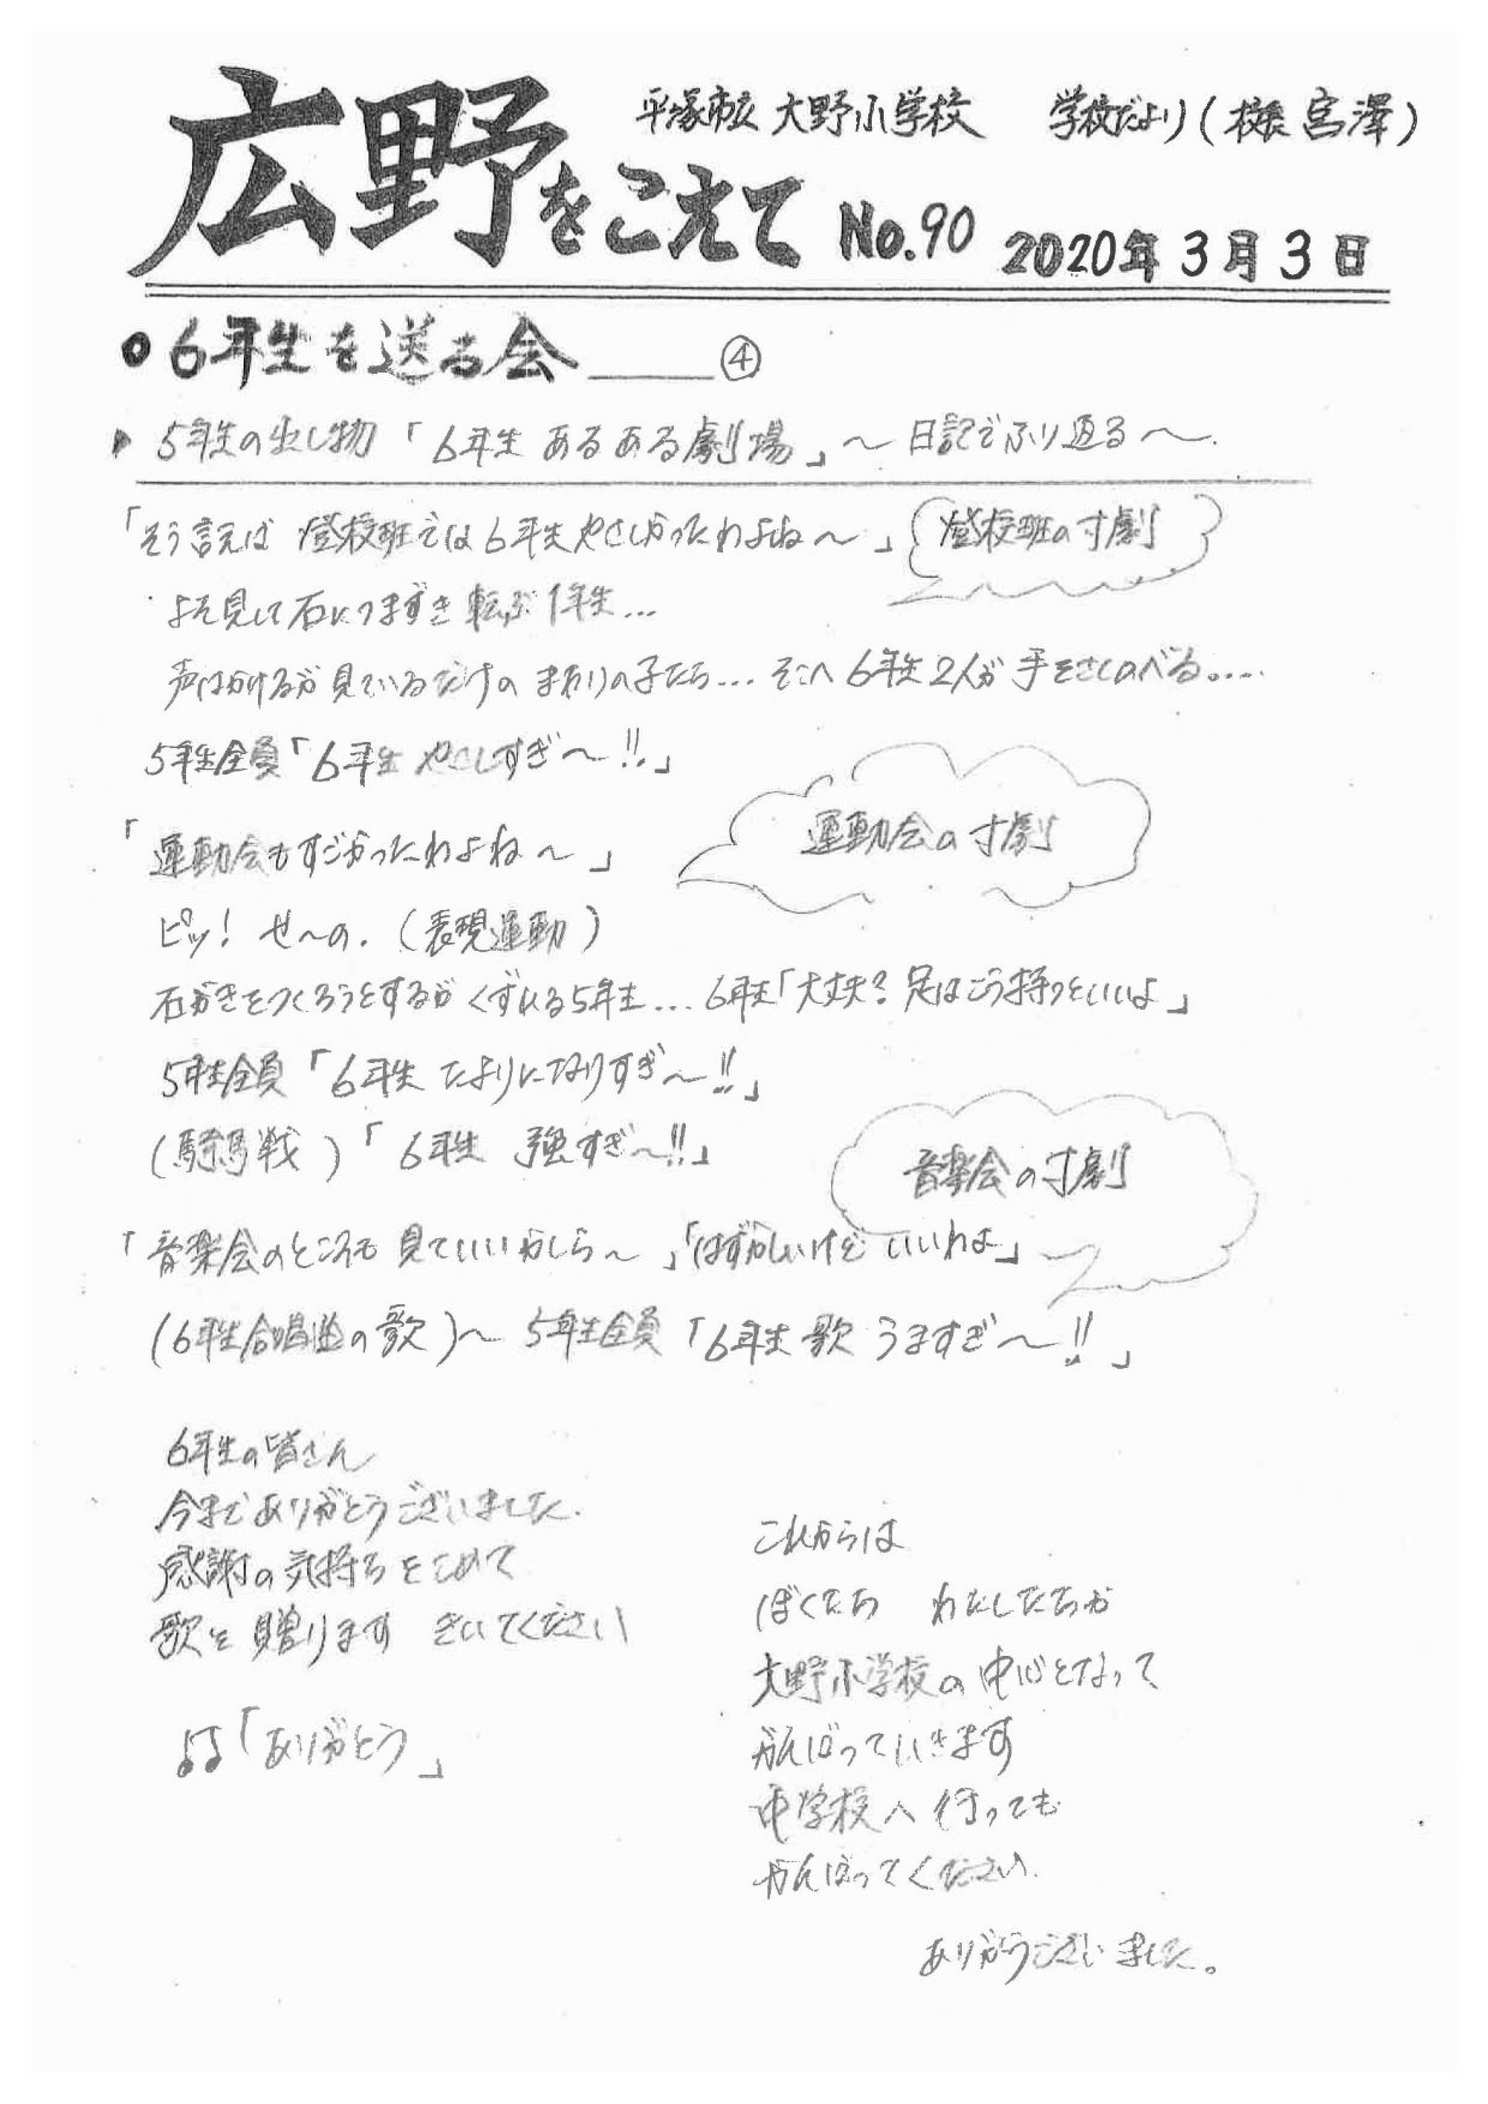 平塚市立 大野小学校　学校だより(校長 宮澤)
広野をこえて No.90 2020年3月3日
●6年生を送る会____④
▶ 5年生の出し物「6年生 あるある劇場」〜日記でふり返る〜.
「そう言えば 登校班では6年生やさしかったわよね〜」登校班の寸劇
よそ見して石につまずき転ぶ1年生...
声はかけるが見ているだけの まわりの子たち... そこへ 6年生2人が 手をさしのべる。...
5年生全員「6年生 やさしすぎ〜!!」
運動会の寸劇
「運動会もすごかったわよね〜」
ピッ! せ〜の.(表現運動)
石がきをつくろうとするが くずれる5年生... 6年生「大丈夫? 足はこう持つといいよ」
5年生全員「6年生 たよりになりすぎ〜!!」
(騎馬戦)「6年生 強すぎ〜!!」
音楽会の寸劇
「音楽会のところも 見ていいかしら〜」「はずかしいけど いいわよ」
(6年生合唱曲の歌)〜 5年生全員「6年生 歌 うますぎ〜!!」
6年生の皆さん
今までありがとうございました.
感謝の気持ちをこめて
歌を贈ります きいてください
♫「ありがとう」
これからは
ぼくたち わたしたちが
大野小学校の中心となって
がんばっていきます
中学校へ行っても
がんばってください.
ありがとうございました。